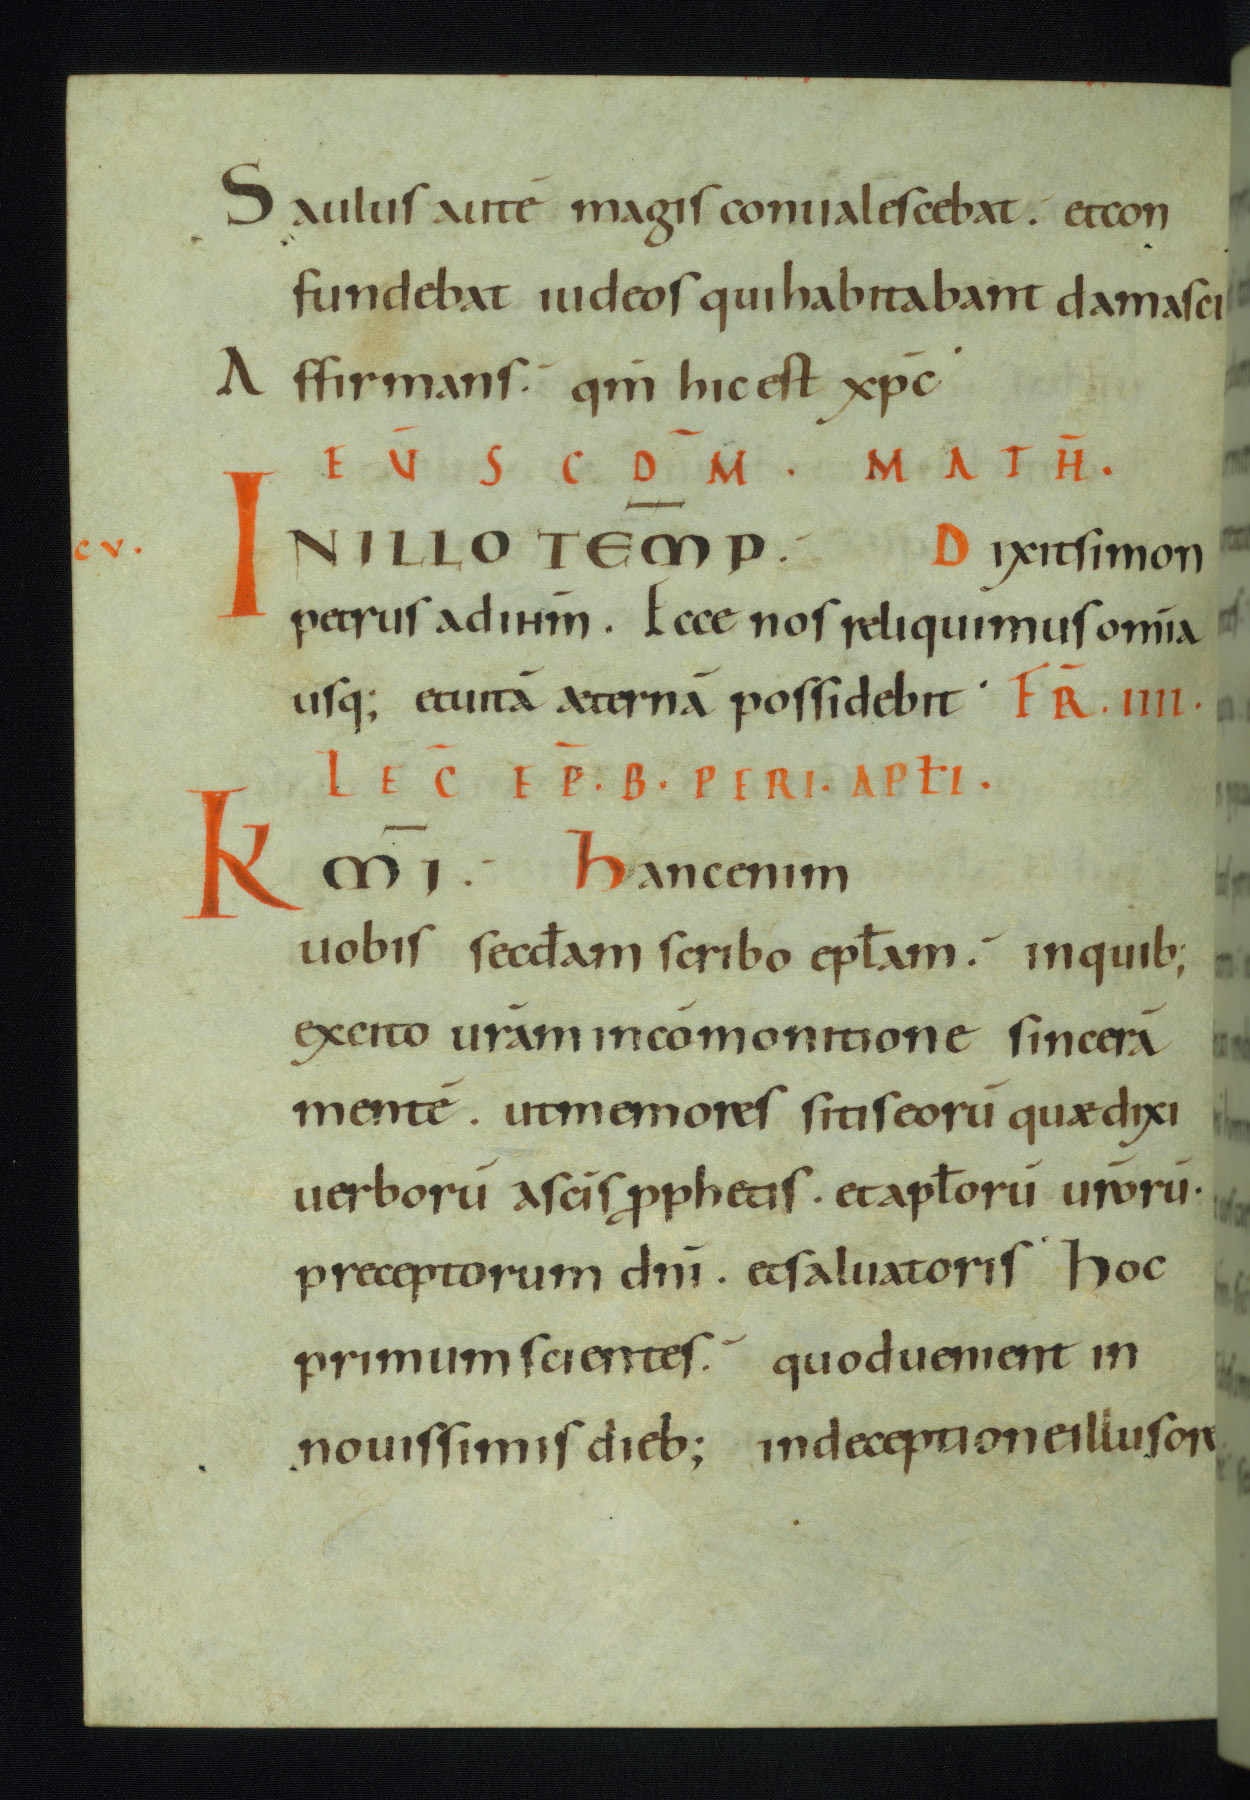 Saulus autē magis conualescebat. et con
fundebat iudeos qui habitabant damasci
Affirmans. qm̄ hic est xp̄c
EV̄ SCDM̄. MATH̄.
cv. IN ILLO TEM̄P. Dixit simon
petrus ad ihm̄. Ecce nos reliquimus om̄ia
usq; et uitā æternā possidebit FR̄. IIII.
LEC̄ EP̄. B. PERI. APŁI.
KM̄I. Hanc enim
uobis secđam scribo epłam. in quib;
excito urām in cōmonitione sincerā
mentē. ut memores sitis eorū quæ dixi
uerborū a scīs ꝓphetis. et apłorū urōrū.
preceptorum dnī. et saluatoris Hoc
primum scientes. quod uenient in
nouissimis dieb; in deceptione illusore